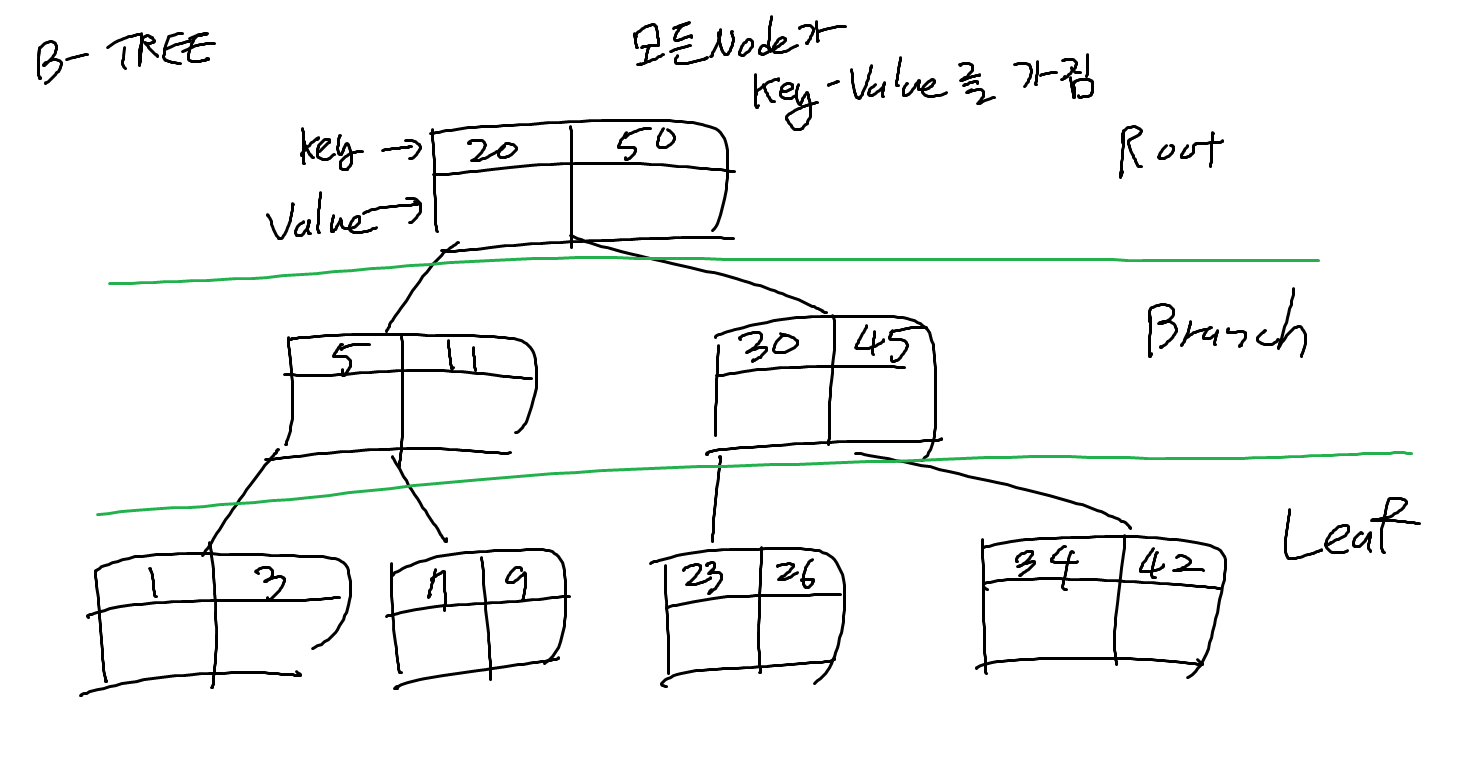 B- TREE
모든 Node가
Key-Value를 가짐
key → 20 50
Value →
Root
5 11
30 45
Branch
1 3
7 9
23 26
34 42
Leaf